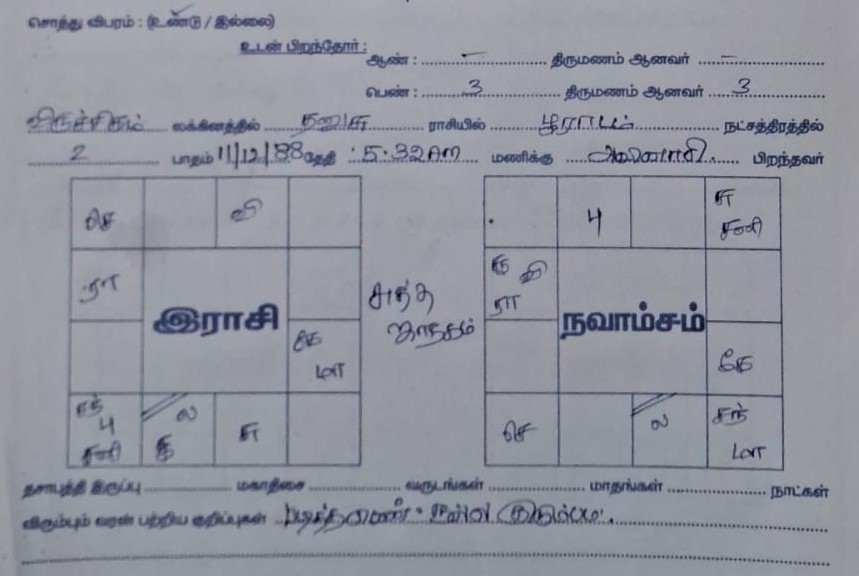 சொத்து விபரம் : (உண்டு / இல்லை)
உடன் பிறந்தோர் :
ஆண் : ..... – ..... திருமணம் ஆனவர் ..... – .....
பெண் : ..... 3 ..... திருமணம் ஆனவர் ..... 3 .....
விருச்சிகம் லக்கினத்தில் தனுசு ராசியில் பூராடம் நட்சத்திரத்தில்
2 பாதம் 11/12/88 தேதி 5.32 AM மணிக்கு பிறந்தவர்
செ வி
ரா
இராசி
கே
மா
சந்
பு
சனி
ல
சு
சுத்த
ஜாதகம்
பு சு
சனி
கு வி
ரா
நவாம்சம்
கே
செ ல சந்
மா
தசாபுத்தி இருப்பு ..... மகாதிசை ..... வருடங்கள் ..... மாதங்கள் ..... நாட்கள்
விரும்பும் வரன் பற்றிய குறிப்புகள் படித்தமண். நல்ல குடும்பம்.